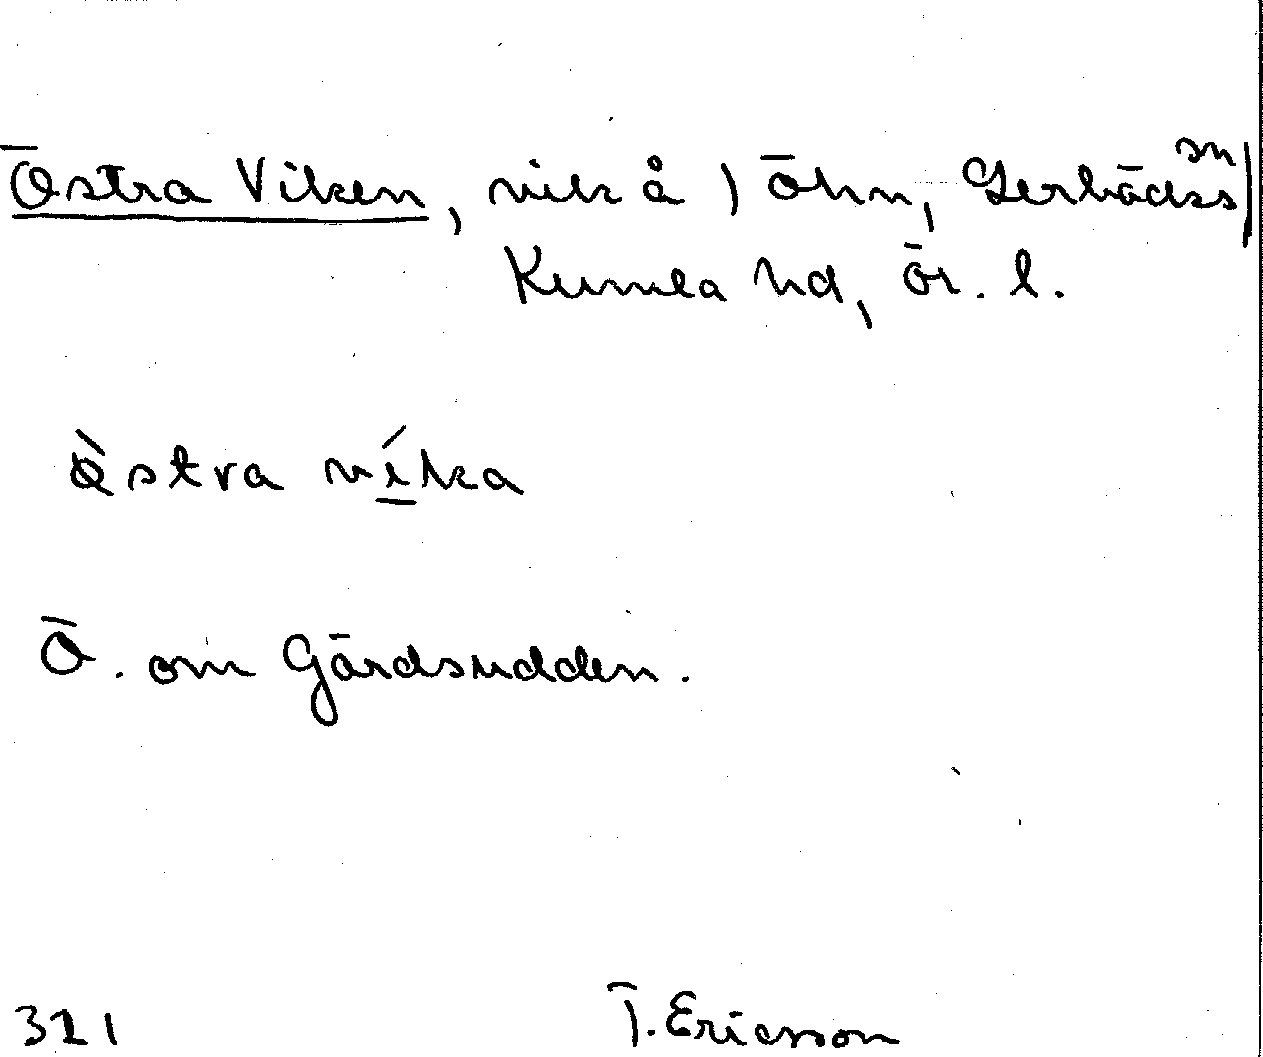 Östra Viken, vik å ) Öhn, Lerbäcks sn)
Kumla hd, Ör. l.
Östra víka
Ö. om Gärdsudden.
321 T. Ericsson